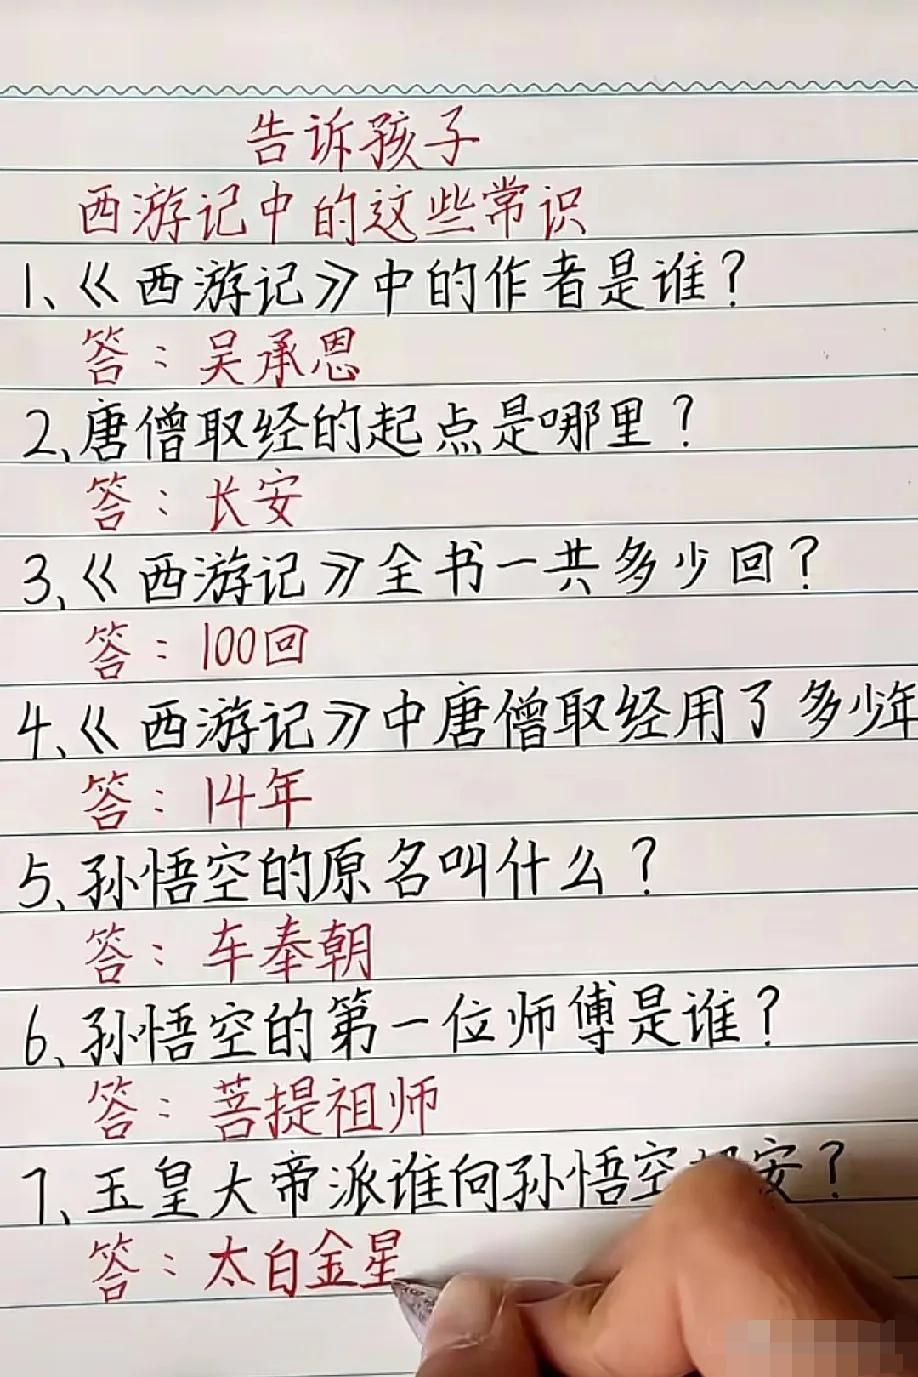 告诉孩子
西游记中的这些常识
1、《西游记》中的作者是谁？
答：吴承恩
2、唐僧取经的起点是哪里？
答：长安
3、《西游记》全书一共多少回？
答：100回
4、《西游记》中唐僧取经用了多少年
答：14年
5、孙悟空的原名叫什么？
答：车奉朝
6、孙悟空的第一位师傅是谁？
答：菩提祖师
7、玉皇大帝派谁向孙悟空安？
答：太白金星